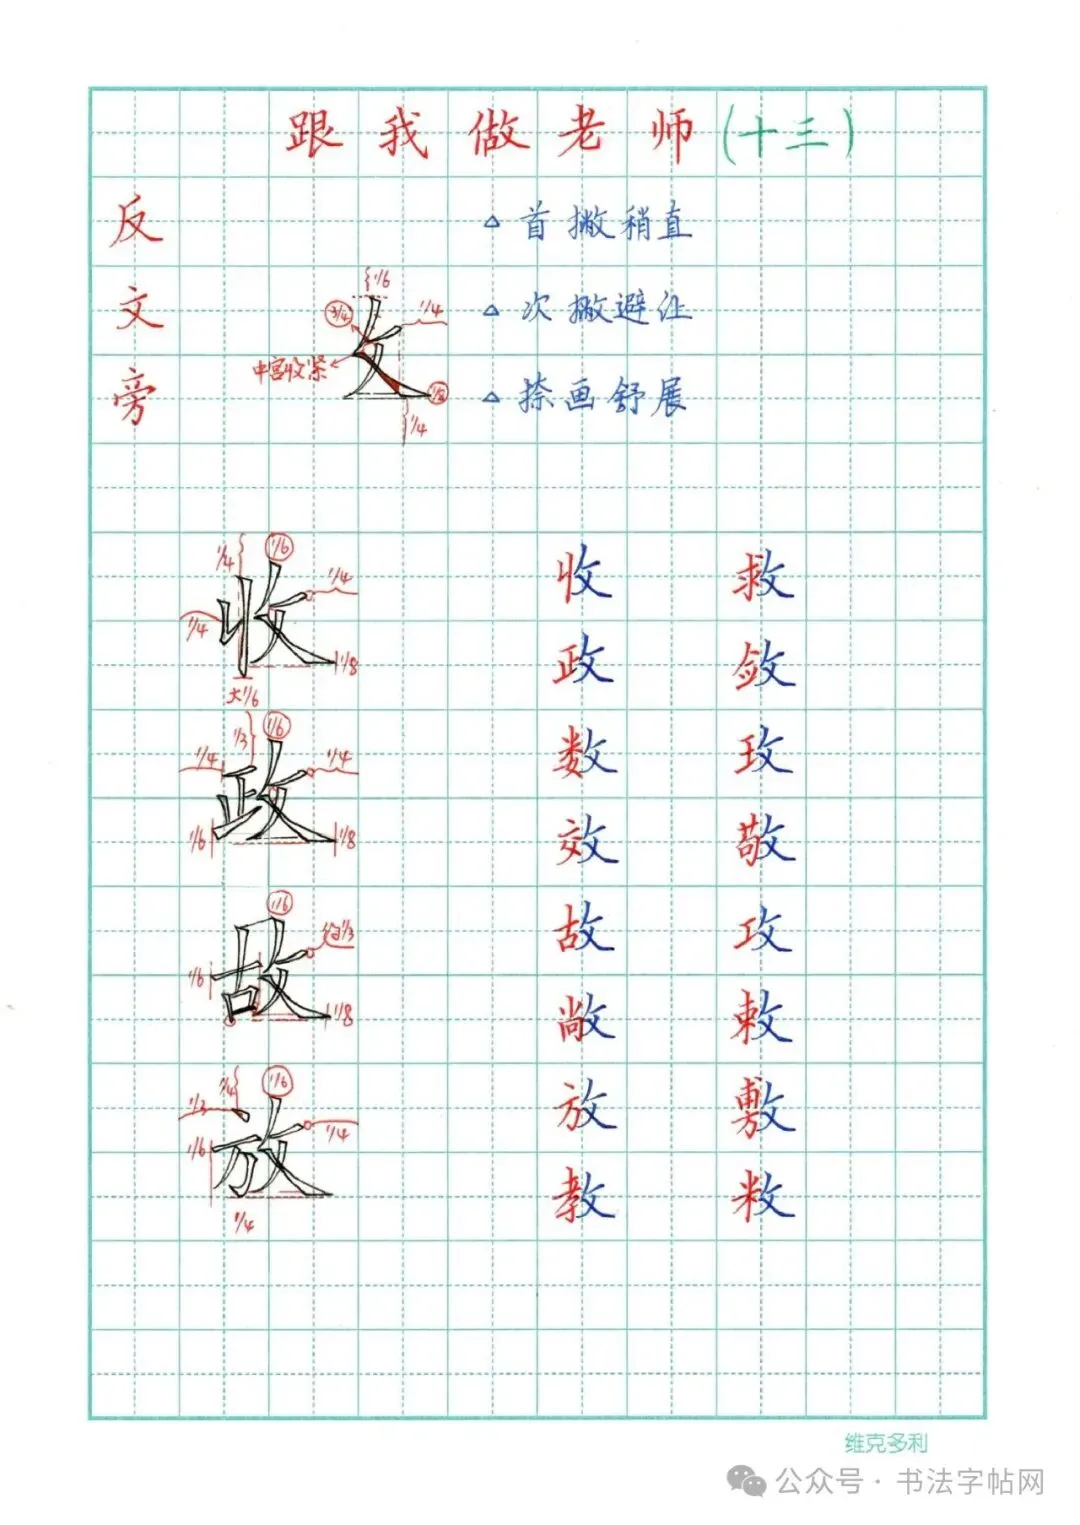 跟我做老师(十三)
反文旁
△首撇稍直
△次撇避让
△捺画舒展
1/6
3/4
1/4
中宫收紧
攵
1/4
1/4
1/6
1/4
1/4
收
1/8
大1/6
收 救
政 敛
1/3
1/6
1/4
1/4
政
1/6
1/8
数 玫
效 敬
1/6
约1/3
故
1/6
1/8
故 攻
敞 敕
1/4
1/6
1/3
1/4
放
1/6
1/4
放 敷
教 敉
维克多利
公众号·书法字帖网